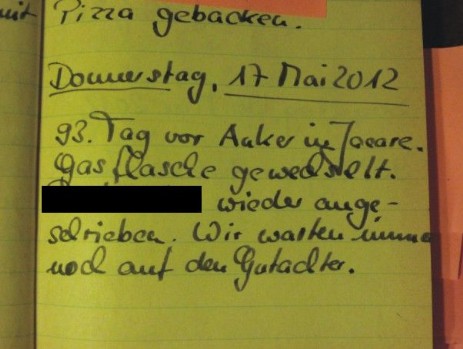 mit
Pizza gebacken.
Donnerstag, 17 Mai 2012
93. Tag vor Anker in Jacare.
Gasflasche gewechselt.
wieder ange-
schrieben. Wir warten immer
noch auf den Gutachter.